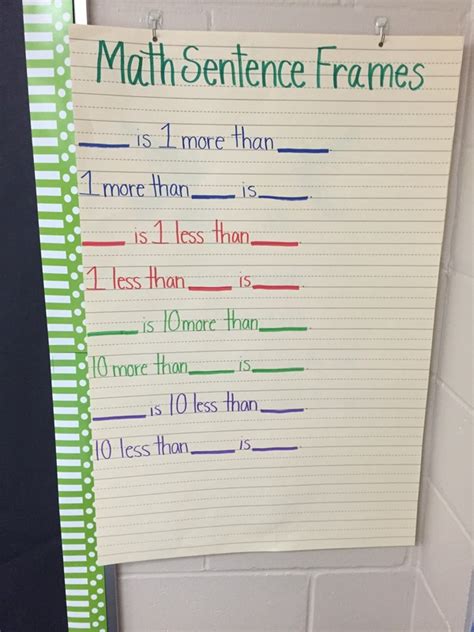 Math Sentence Frames
____ is 1 more than ____.
1 more than ____ is ____.
____ is 1 less than ____.
1 less than ____ is ____.
____ is 10 more than ____.
10 more than ____ is ____.
____ is 10 less than ____.
10 less than ____ is ____.